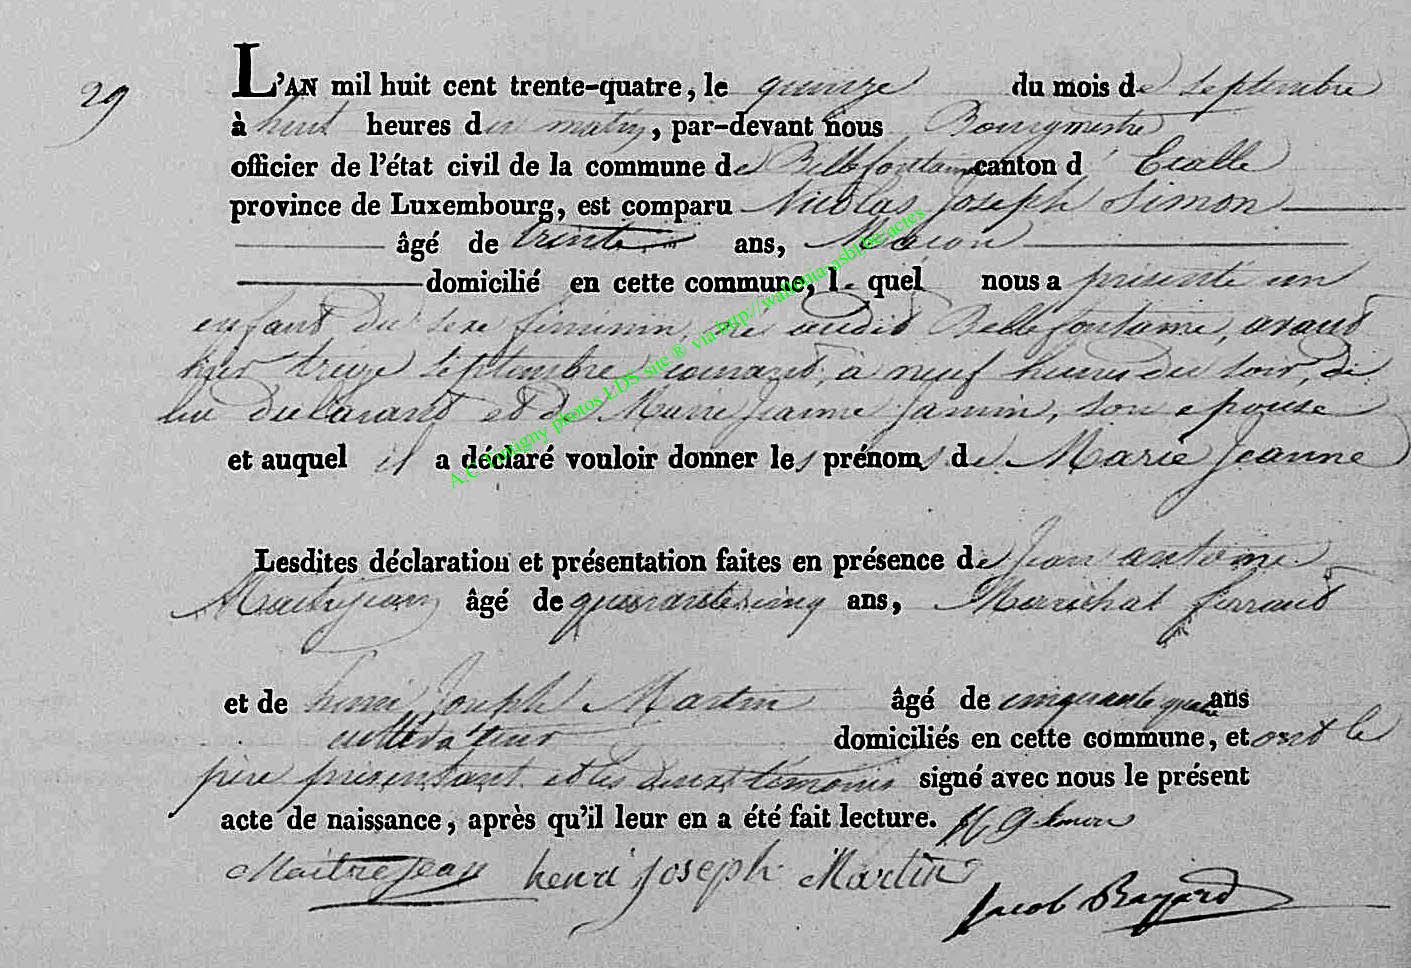 29
L'AN mil huit cent trente-quatre, le quinze du mois de Septembre
à huit heures du matin, par-devant nous Bourgmestre
officier de l'état civil de la commune de Bellefontaine canton d' Etalle
province de Luxembourg, est comparu Nicolas Joseph Simon
âgé de trente ans, Maçon
domicilié en cette commune, le quel nous a présenté un
enfant du sexe féminin, né audit Bellefontaine, avant
hier treize Septembre courant, à neuf heures du soir, de
lui déclarant et de Marie Jeanne Jamin, son epouse
et auquel il a déclaré vouloir donner les prénoms de Marie Jeanne
Lesdites déclaration et présentation faites en présence de Jean antoine
Maitrejean âgé de quarante cinq ans, Maréchal ferrant
et de henri Joseph Martin âgé de cinquante quatre ans
cultivateur domiciliés en cette commune, et ont le
père présentant et les deux témoins signé avec nous le présent
acte de naissance, après qu'il leur en a été fait lecture. Simon
Maitrejean henri Joseph Martin
Jacob Bayard
A.C. Tintigny photos LDS site ® via http://wallonia-asbl.be/actes